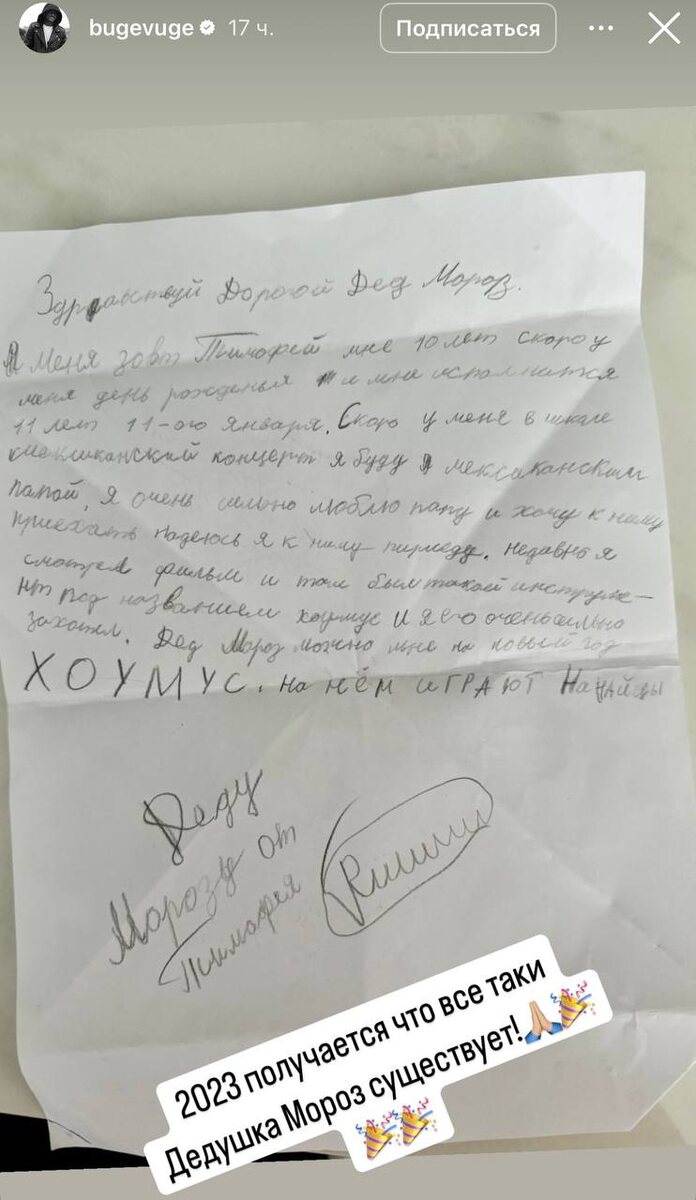 bugevuge 17 ч. Подписаться
Здравствуй Дорогой Дед Мороз.
Меня зовт Тимофей мне 10 лет скоро у
меня день рожденья и мне исполнится
11 лет 11-ого января. Скоро у меня в школе
мексиканский концерт я буду мексаканским
папой, я очень сильно люблю папу и хочу к нему
приехать надеюсь я к нему приеду. недавно я
смотрел фильм и там был такой инструме-
нт под названием хоумус и я его очень сильно
захотел. Дед Мороз можно мне на новый год
ХОУМУС. На нём ИГРАЮТ Нанайцы
Деду
Морозу от
Тимофея
2023 получается что все таки
Дедушка Мороз существует!🙏🏼🎉
🎉🎉